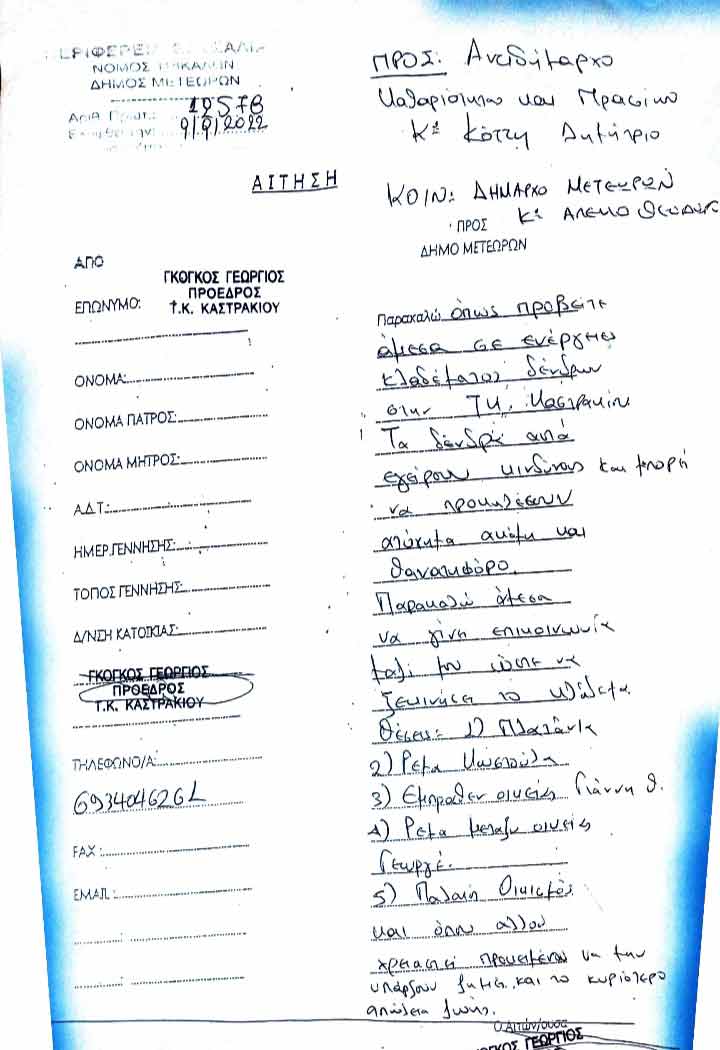 ΠΕΡΙΦΕΡΕΙΑ ΘΕΣΣΑΛΙΑΣ
ΝΟΜΟΣ ΤΡΙΚΑΛΩΝ
ΔΗΜΟΣ ΜΕΤΕΩΡΩΝ
Αριθ. Πρωτ. 19578
9/9/2022
ΑΙΤΗΣΗ
ΠΡΟΣ: Αντιδήμαρχο
Καθαριότητας και Πρασίνου
Κο Κόττη Δημήτριο
ΚΟΙΝ: ΔΗΜΑΡΧΟ ΜΕΤΕΩΡΩΝ
Κο ΑΛΕΚΟ
ΠΡΟΣ
ΔΗΜΟ ΜΕΤΕΩΡΩΝ
ΑΠΟ
ΓΚΟΓΚΟΣ ΓΕΩΡΓΙΟΣ
ΠΡΟΕΔΡΟΣ
ΕΠΩΝΥΜΟ: Τ.Κ. ΚΑΣΤΡΑΚΙΟΥ
ΟΝΟΜΑ:
ΟΝΟΜΑ ΠΑΤΡΟΣ:
ΟΝΟΜΑ ΜΗΤΡΟΣ:
Α.Δ.Τ.:
ΗΜΕΡ.ΓΕΝΝΗΣΗΣ:
ΤΟΠΟΣ ΓΕΝΝΗΣΗΣ:
Δ/ΝΣΗ ΚΑΤΟΙΚΙΑΣ:
ΓΚΟΓΚΟΣ ΓΕΩΡΓΙΟΣ
ΠΡΟΕΔΡΟΣ
Τ.Κ. ΚΑΣΤΡΑΚΙΟΥ
ΤΗΛΕΦΩΝΟ/Α:
FAX :
EMAIL :
Παρακαλώ όπως προβείτε
άμεσα σε ενέργειες
κλαδέματος δένδρων
στην ΤΚ. Καστρακίου
Τα δένδρα αυτά
εγείρουν κινδύνους και μπορή
να προκαλέσουν
ατύχημα ακόμη και
θανατηφόρο.
Παρακαλώ άμεσα
να γίνη επικοινωνία
μαζί μου ώστε να
ξεκινήσει το κλάδεμα
Θέσεις: 1) Πλατάνια
2) Ρεμα Κωστούλα
3) Εμπροθεν οικείας Γιάννη Θ.
4) Ρεμα μεταξυ οικείας
Γεωργέ.
5) Παλαιη Οικισμός
και όπου αλλού
χρειαστεί προκειμένου να μην
υπάρξουν ζημιες και το κυριότερο
απώλεια ζωής.
Ο Αιτών/ουσα
ΓΚΟΓΚΟΣ ΓΕΩΡΓΙΟΣ